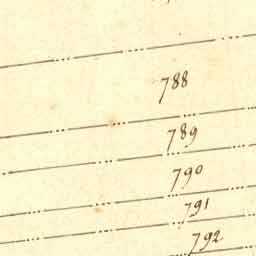 788
789
790
791
792